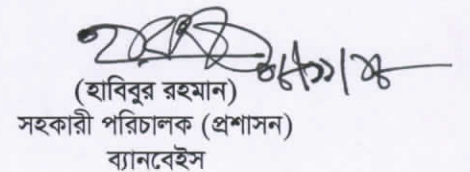 (হাবিবুর রহমান)
সহকারী পরিচালক (প্রশাসন)
ব্যানবেইস